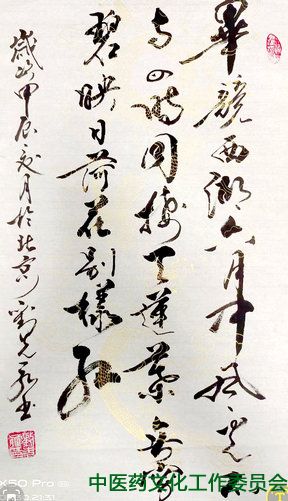 畢競西湖六月中風光不
与四時同接天蓮葉無窮
碧映日荷花别樣红
歲次甲辰夏月於北京劉光
X50 Pro
21:31
中医药文化工作委员会